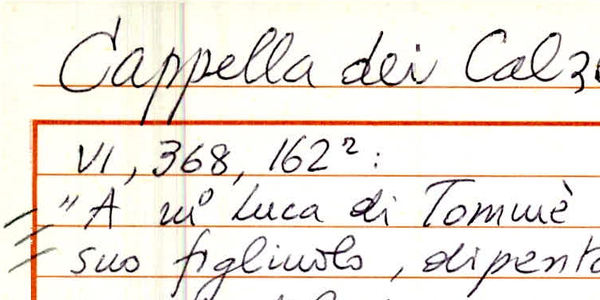 Cappella dei Calz
VI, 368, 162²:
"A m° Luca di Tommè
suo figliuolo, dipento